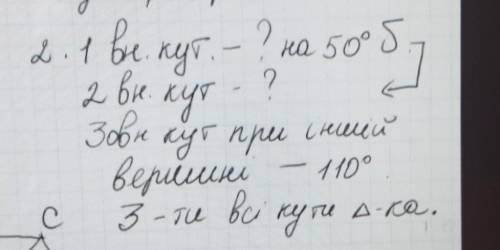 2. 1 вн. кут. - ? на 50° б.
2 вн. кут - ?
Зовн кут при іншій
вершині - 110°.
C
З-ти всі кути Δ-ка.